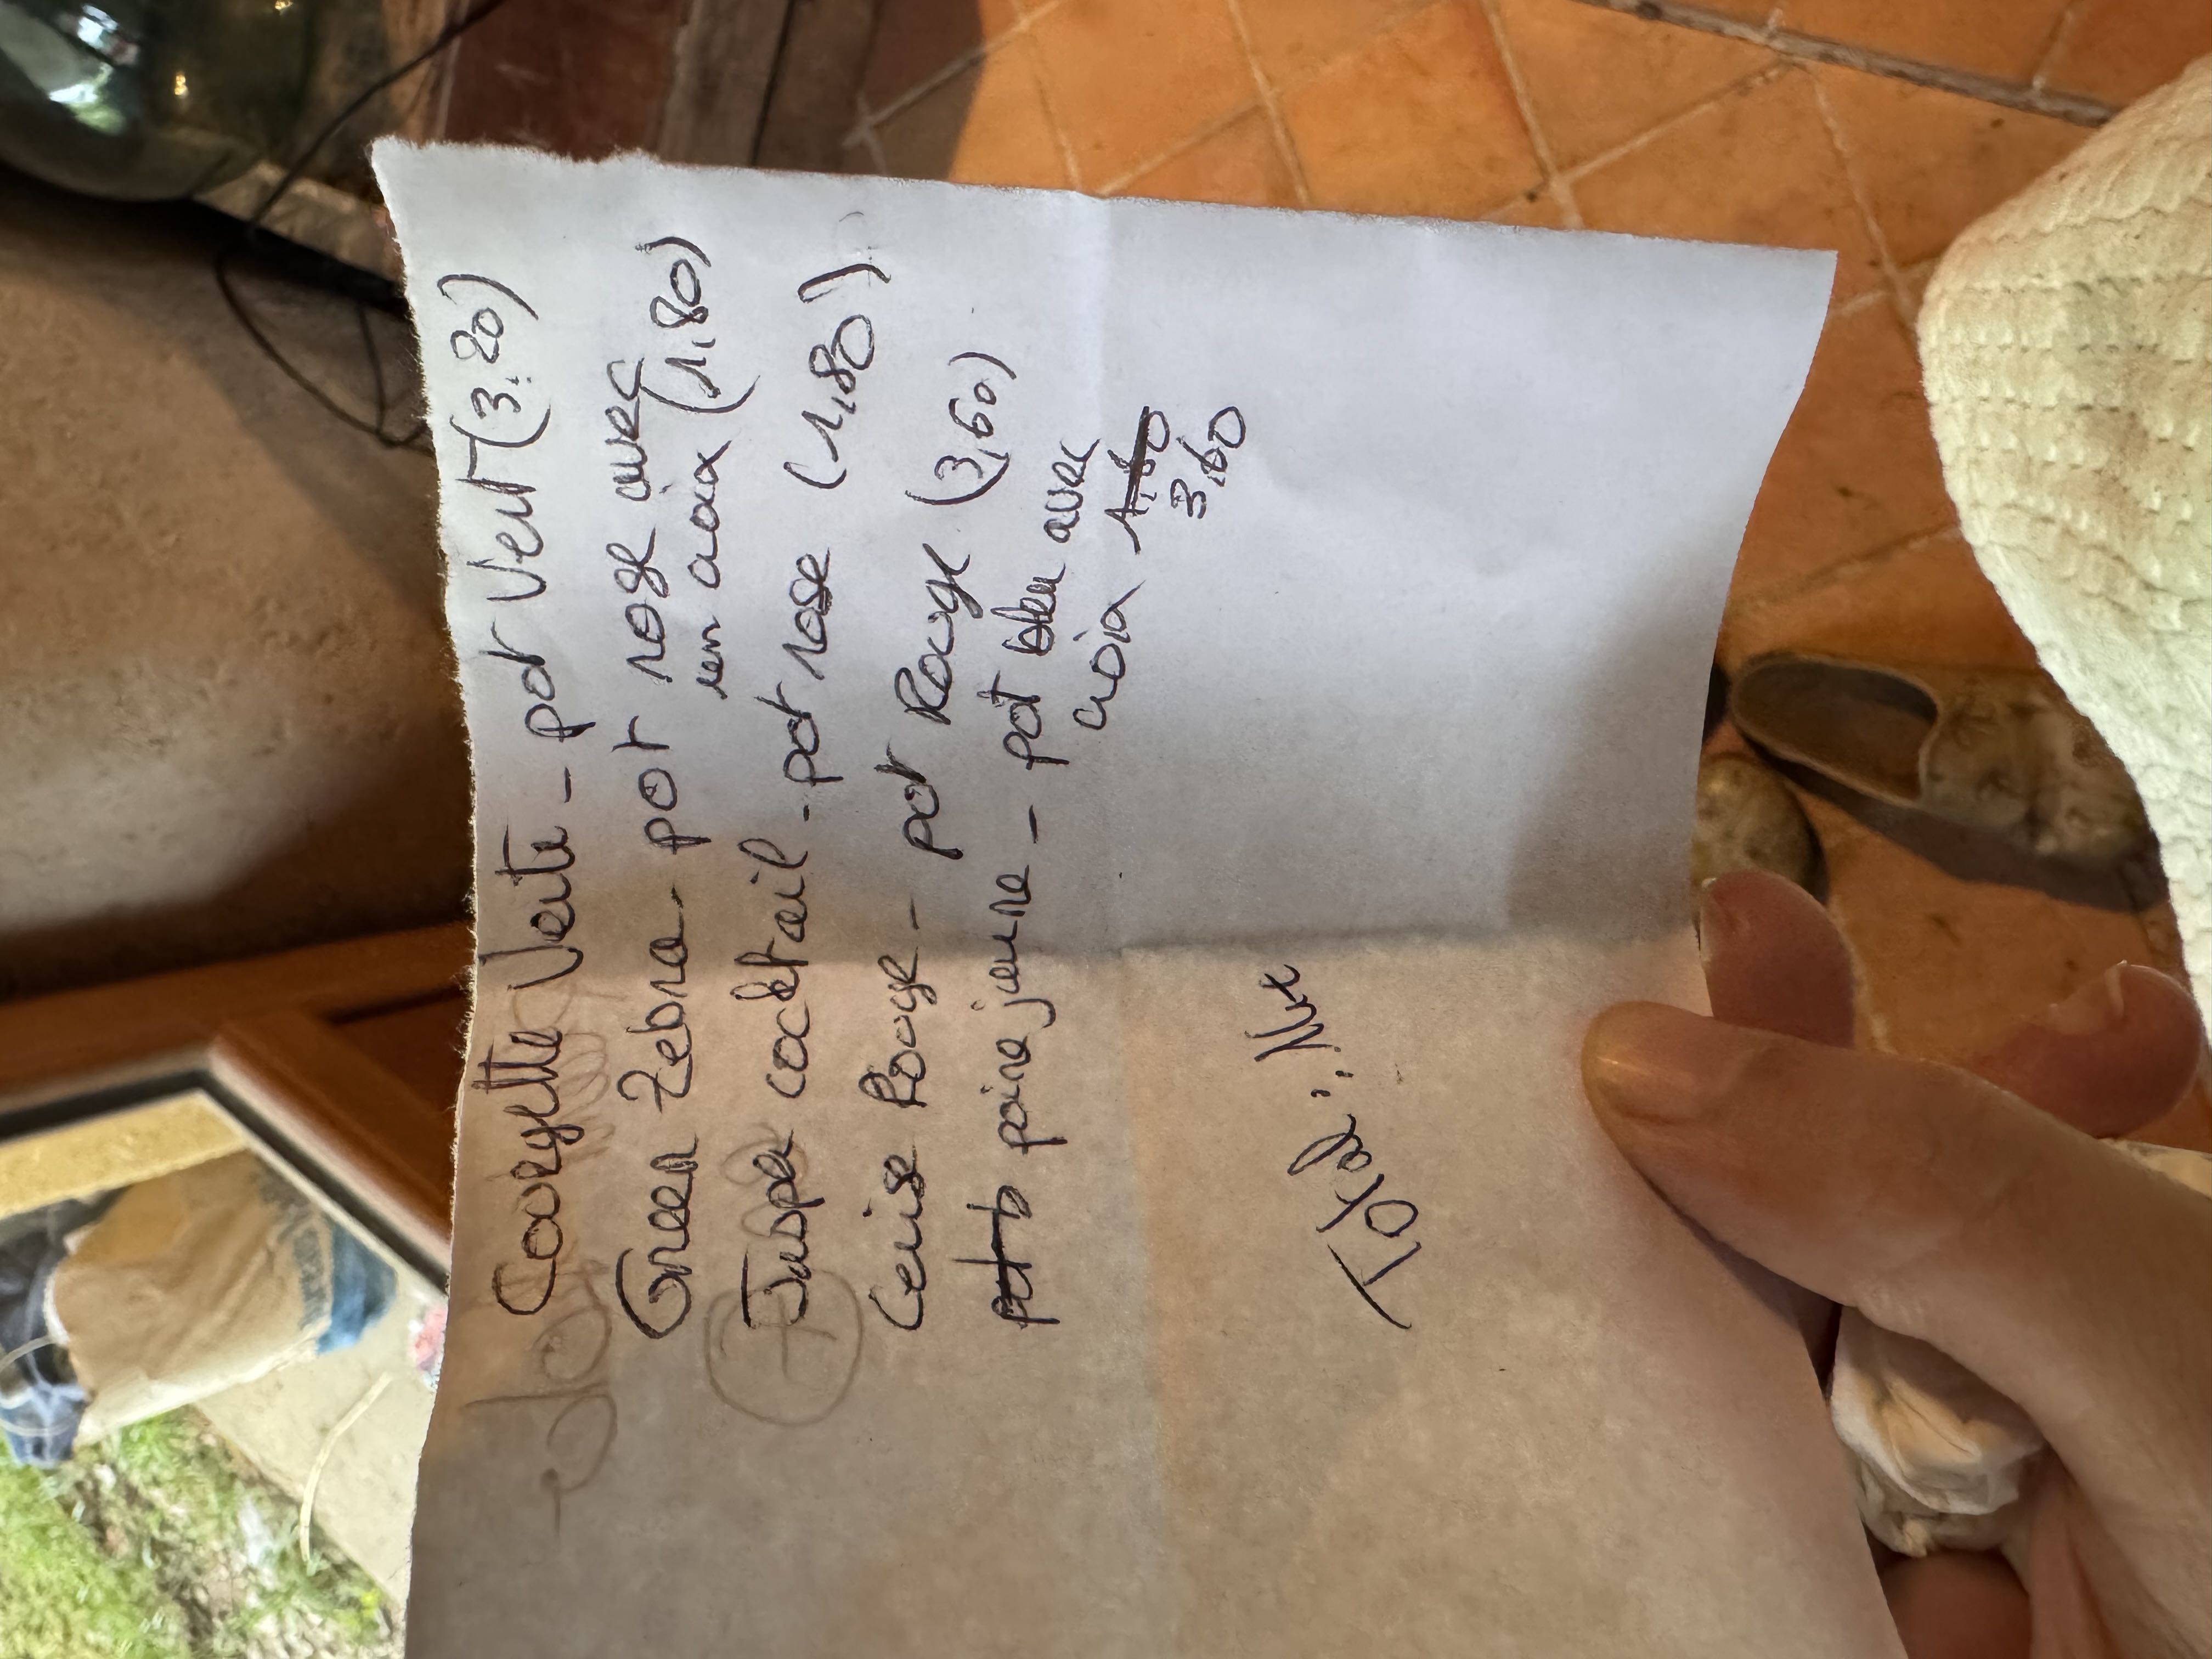 Courgette Verte - pot Vert (3.20)
Green Zebra - pot rose avec
un croix (1,80)
Jaspe cocktail - pot rose (1,80)
Cerise Rouge - pot Rouge (3,60)
poire jaune - pot bleu avec
croix 1,80
3,60
Total :